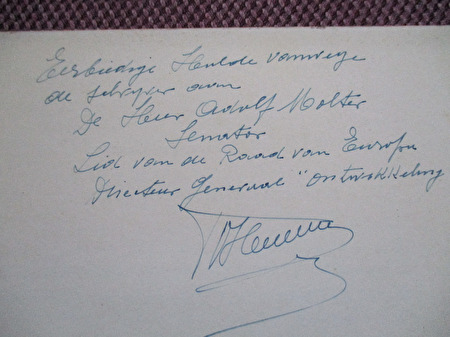 Eerbiedige Hulde vanwege
de schrijver aan
De Heer Adolf Molter
Senator
Lid van de Raad van Europa
Directeur Generaal "Ontwikkeling